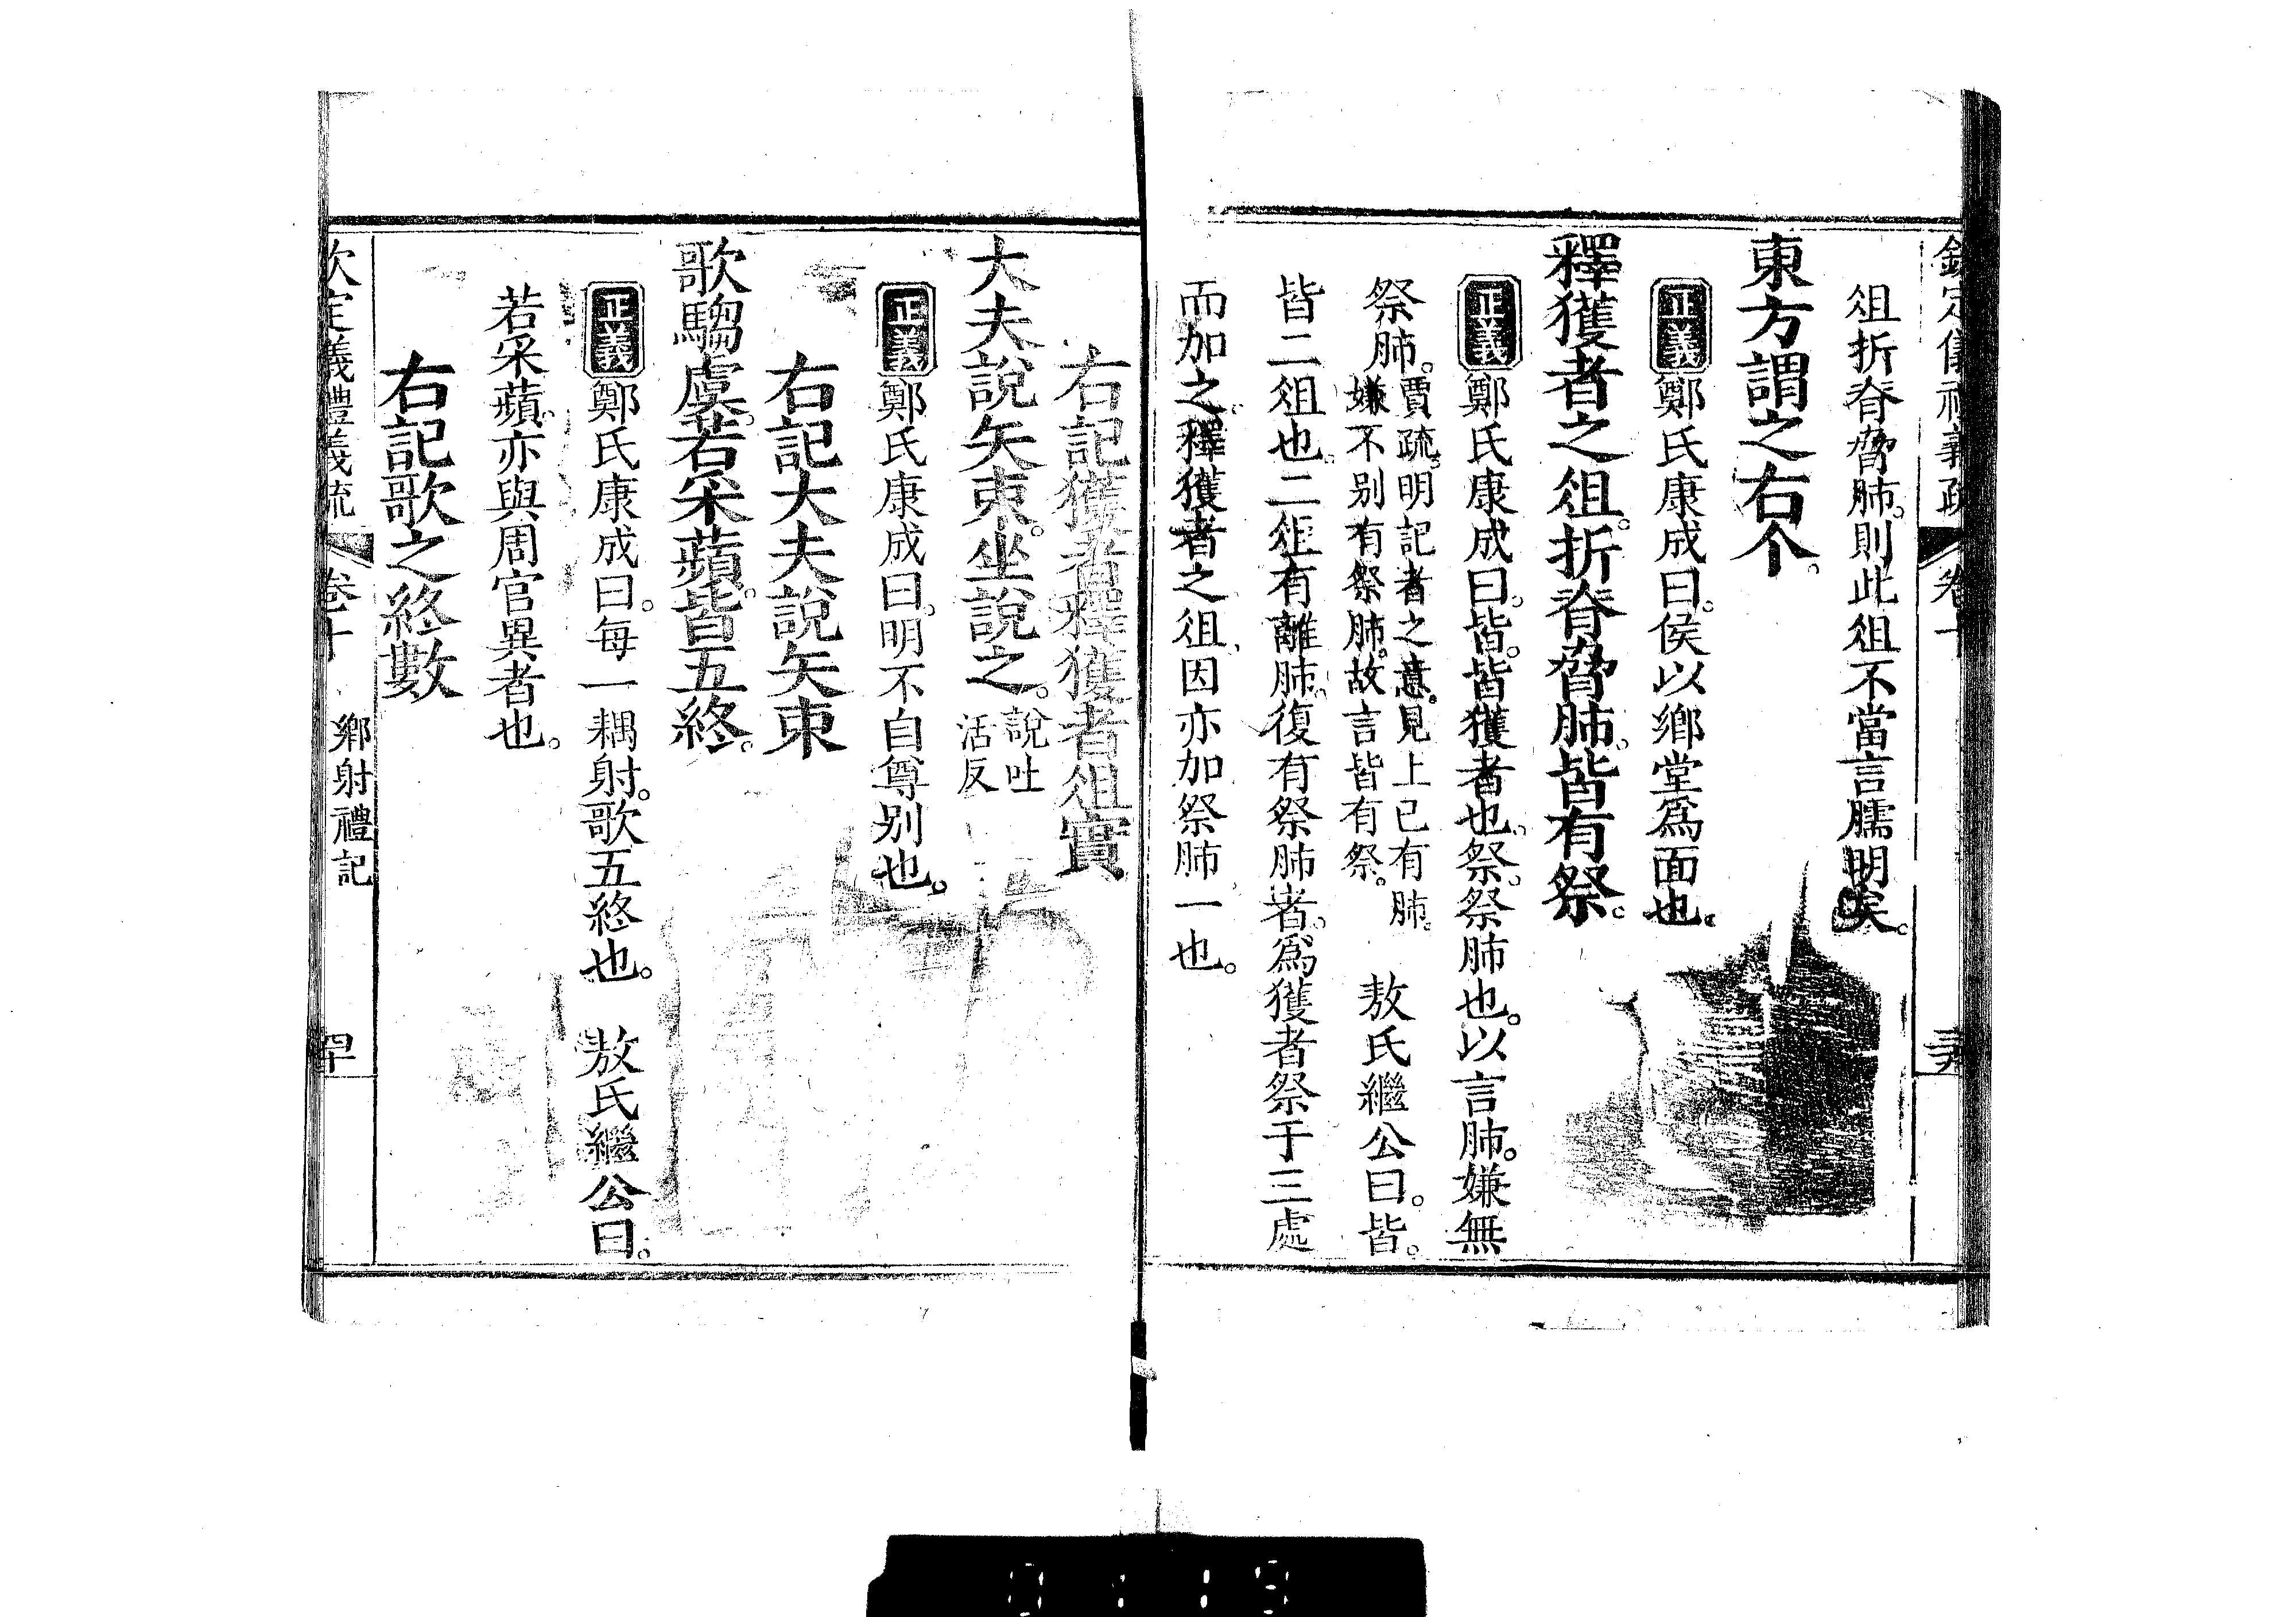 欽定儀禮義疏 卷十 三九
俎折脊脅肺。則此俎不當言臑明矣。
東方謂之右个。
正義鄭氏康成曰。侯以鄉堂爲面也。
釋獲者之俎。折脊脅肺。皆有祭。
正義鄭氏康成曰。皆。皆獲者也。祭。祭肺也。以言肺。嫌無
祭肺。賈疏。明記者之意。見上已有肺。嫌不别有祭肺。故言皆有祭。 敖氏繼公曰。皆。
皆二俎也。二俎有離肺。復有祭肺者。爲獲者祭于三處
而加之。釋獲者之俎。因亦加祭肺一也。
右記獲者釋獲者俎實
大夫說矢束。坐說之。說吐活反
正義鄭氏康成曰。明不自尊别也。
右記大夫說矢束
歌騶虞。若采蘋。皆五終。
正義鄭氏康成曰。每一耦射。歌五終也。 敖氏繼公曰。
若采蘋。亦與周官異者也。
右記歌之終數
欽定義禮義疏 卷十 鄉射禮記 罕
0119